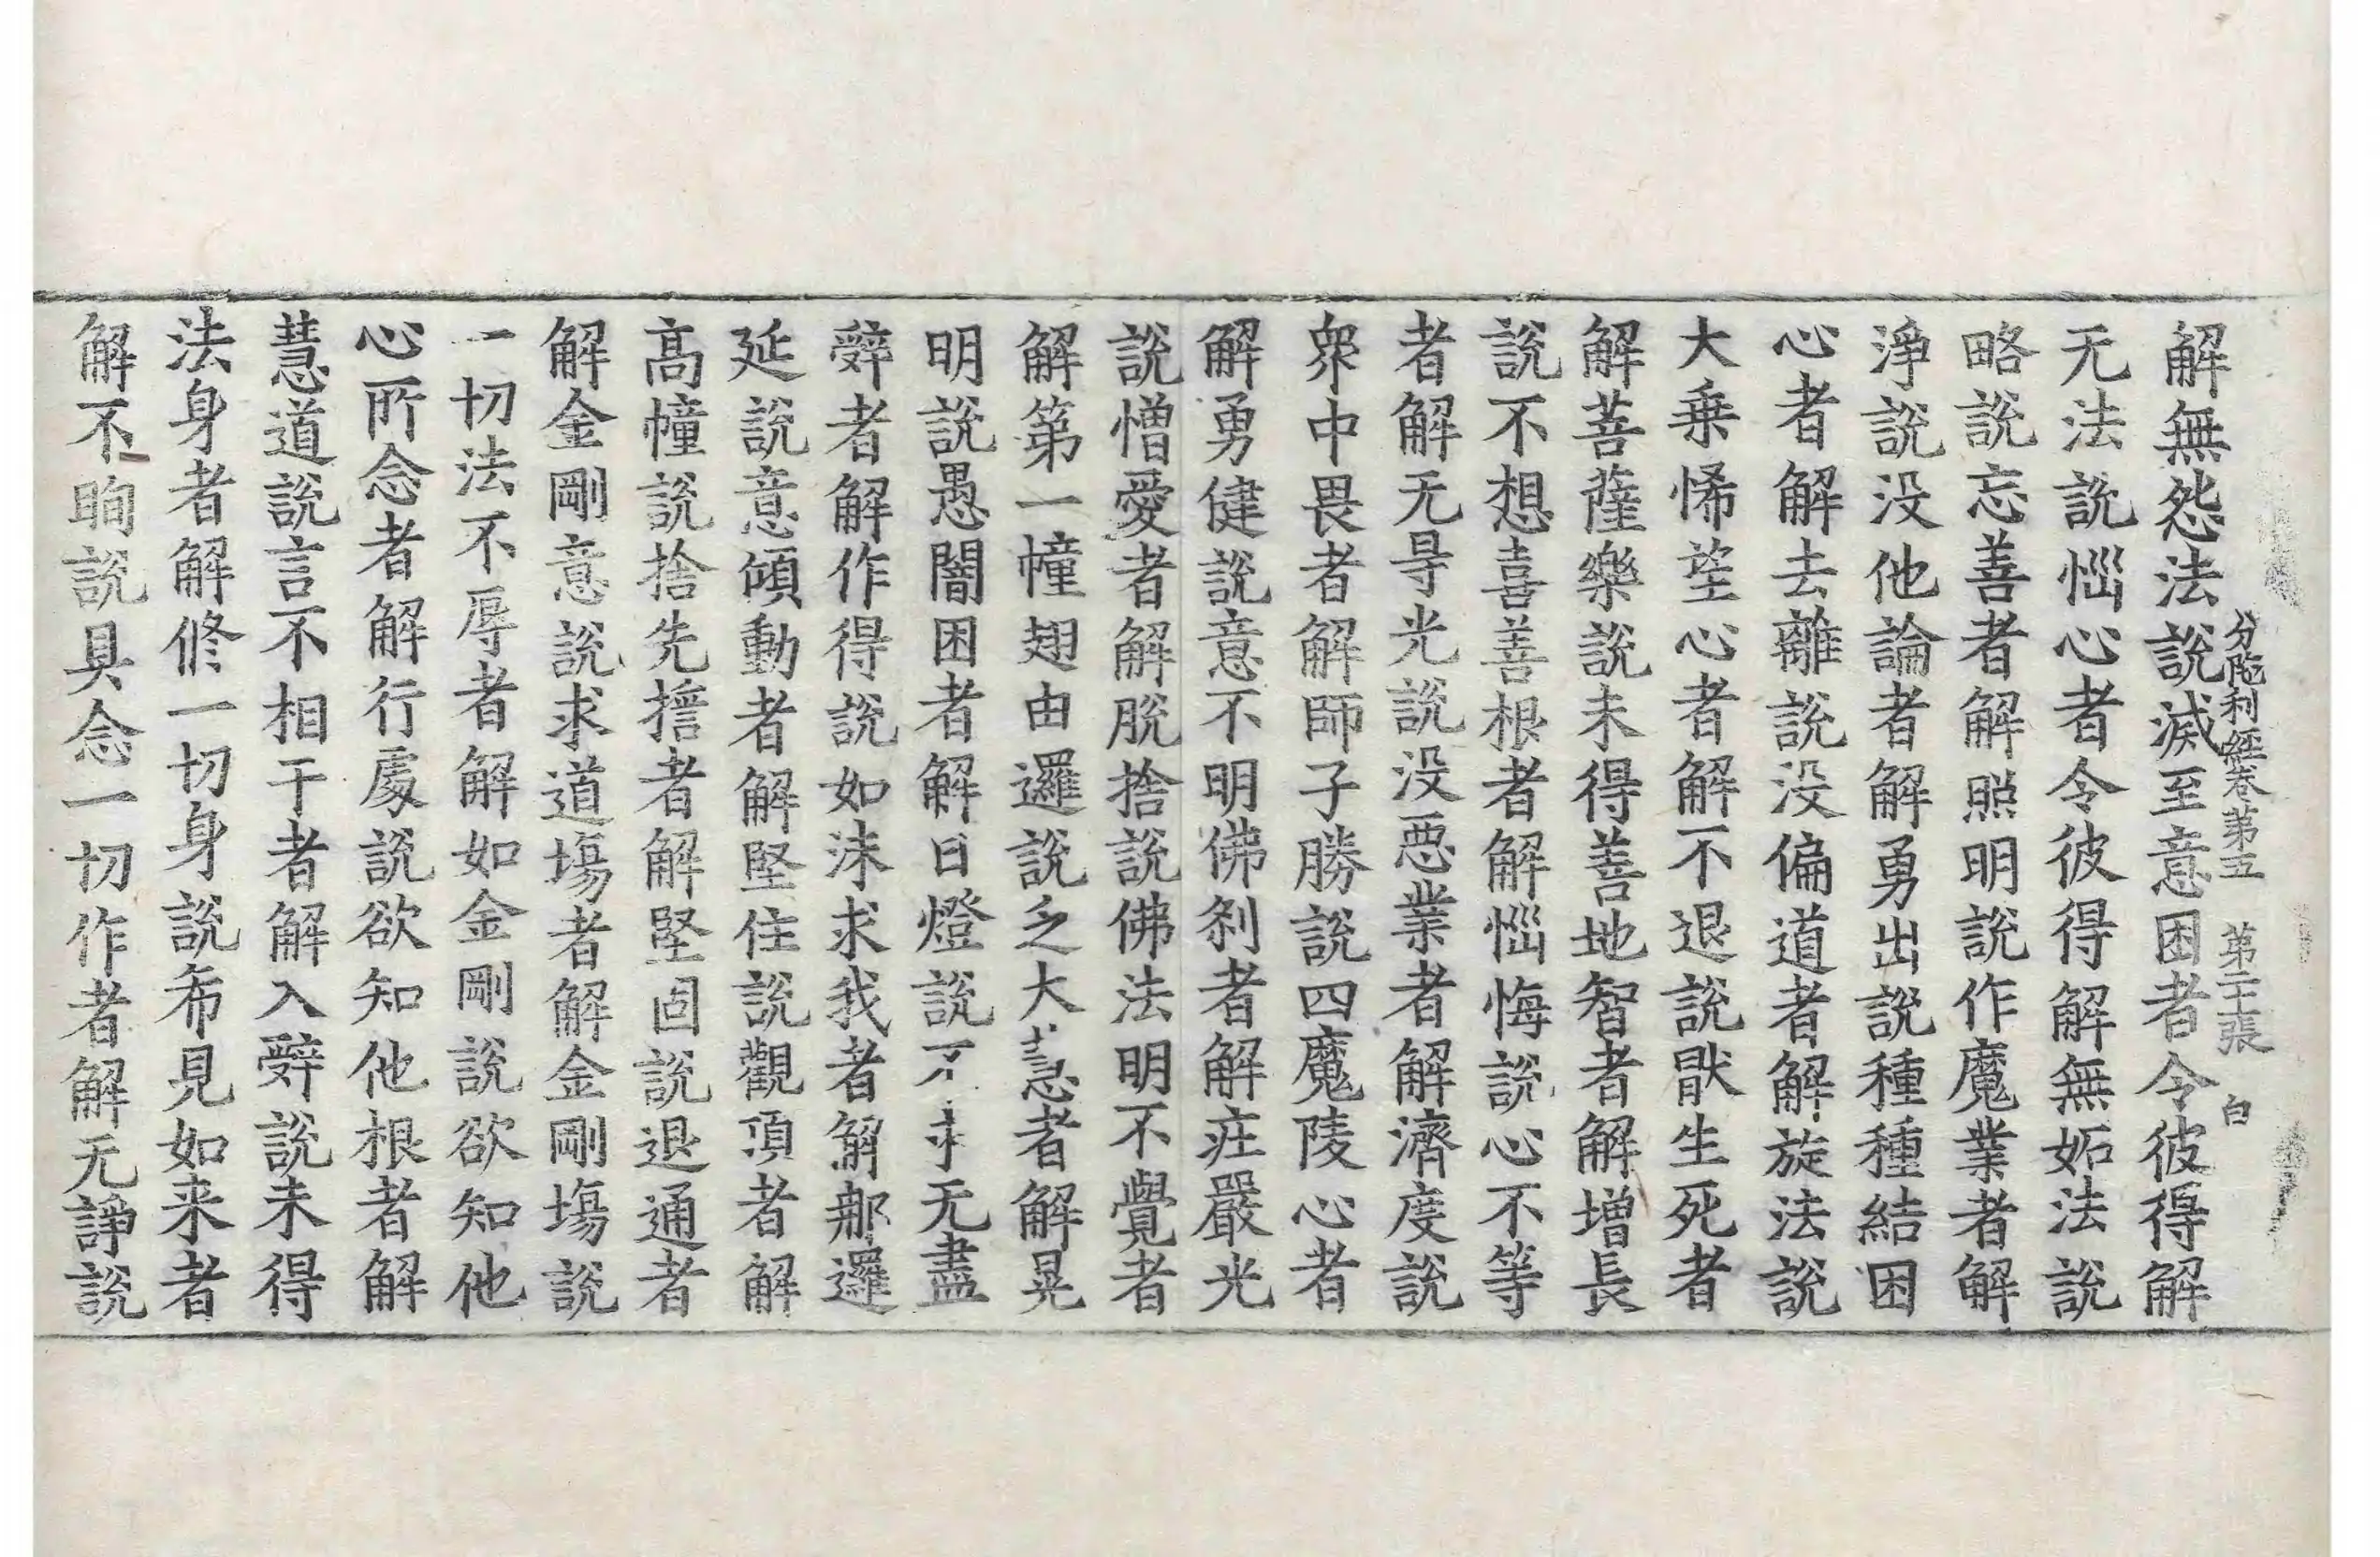 分陁利經卷第五 第二十張 白
解無怨法說滅至意困者令彼得解
无法說惱心者令彼得解無妬法說
略說忘善者解照明說作魔業者解
淨說没他論者解勇出說種種結困
心者解去離說没偏道者解旋法說
大乗悕望心者解不退說猒生死者
解菩薩樂說未得善地智者解增長
說不想喜善根者解惱悔說心不等
者解无㝵光說没惡業者解濟度說
衆中畏者解師子勝說四魔陵心者
解勇健說意不明佛刹者解莊嚴光
說憎愛者解脫捨說佛法明不覺者
解第一幢翅由邏說乏大慧者解晃
明說愚闇困者解日燈說不求无盡
辤者解作得說如沫求我者解那邏
延說意傾動者解堅住說觀頂者解
高幢說捨先擔者解堅固說退通者
解金剛意說求道場者解金剛場說
一切法不辱者解如金剛說欲知他
心所念者解行處說欲知他根者解
慧道說言不相干者解入辤說未得
法身者解修一切身說希見如来者
解不眴說具念一切作者解无諍說